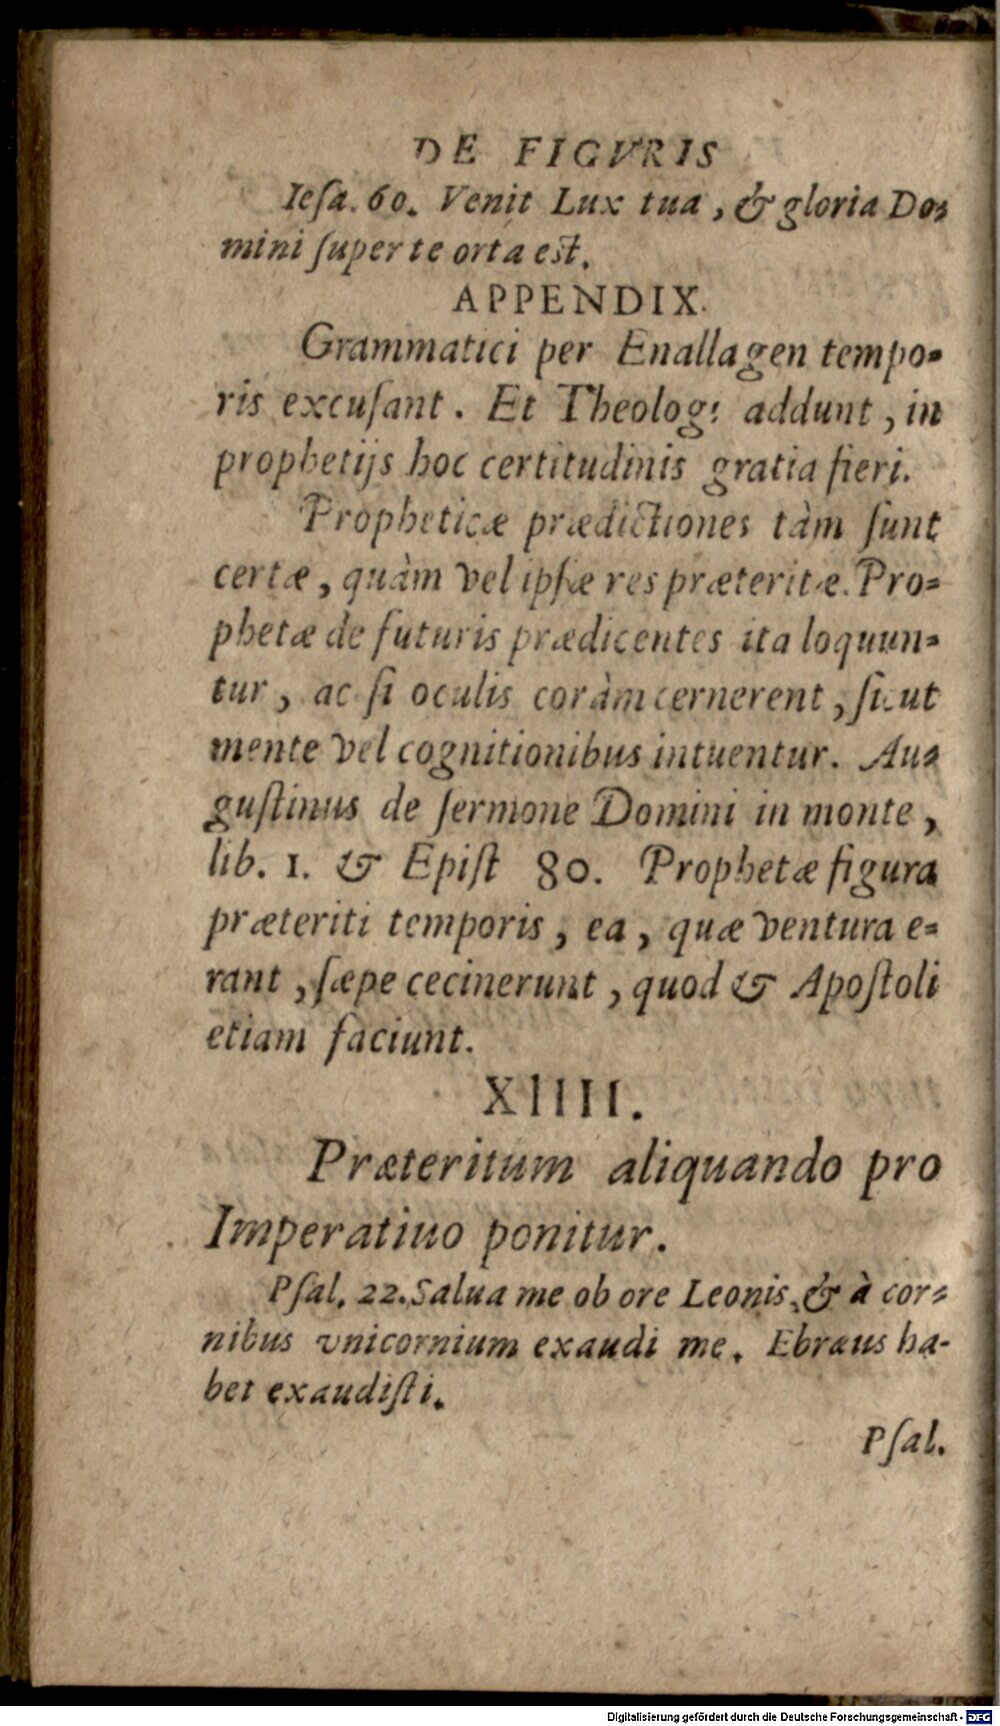 DE FIGVRIS
Ieſa. 60. Venit Lux tua, & gloria Do-
mini ſuper te orta est.
APPENDIX.
Grammatici per Enallagen tempo-
ris excuſant. Et Theologi addunt, in
prophetijs hoc certitudinis gratia fieri.
Propheticæ prædictiones tàm ſunt
certæ, quàm vel ipſæ res præteritæ. Pro-
phetæ de futuris prædicentes ita loquun-
tur, ac ſi oculis coràm cernerent, ſicut
mente vel cognitionibus intuentur. Au-
guſtinus de ſermone Domini in monte,
lib. 1. & Epiſt 80. Prophetæ figura
præteriti temporis, ea, quæ ventura e-
rant, ſæpe cecinerunt, quod & Apoſtoli
etiam faciunt.
XIIII.
Præteritum aliquando pro
Imperatiuo ponitur.
Pſal. 22. Salua me ob ore Leonis, & à cor-
nibus vnicornium exaudi me. Ebræus ha-
bet exaudiſti.
Pſal.
Digitalisierung gefördert durch die Deutsche Forschungsgemeinschaft - DFG